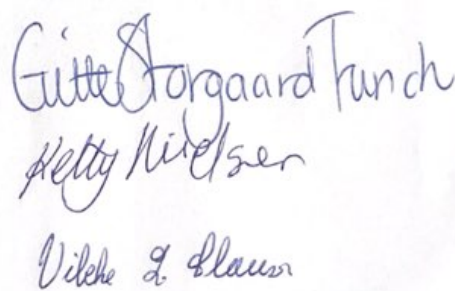 Gitte Storgaard Funch
Ketty Nielsen
Vibeke L Clausen